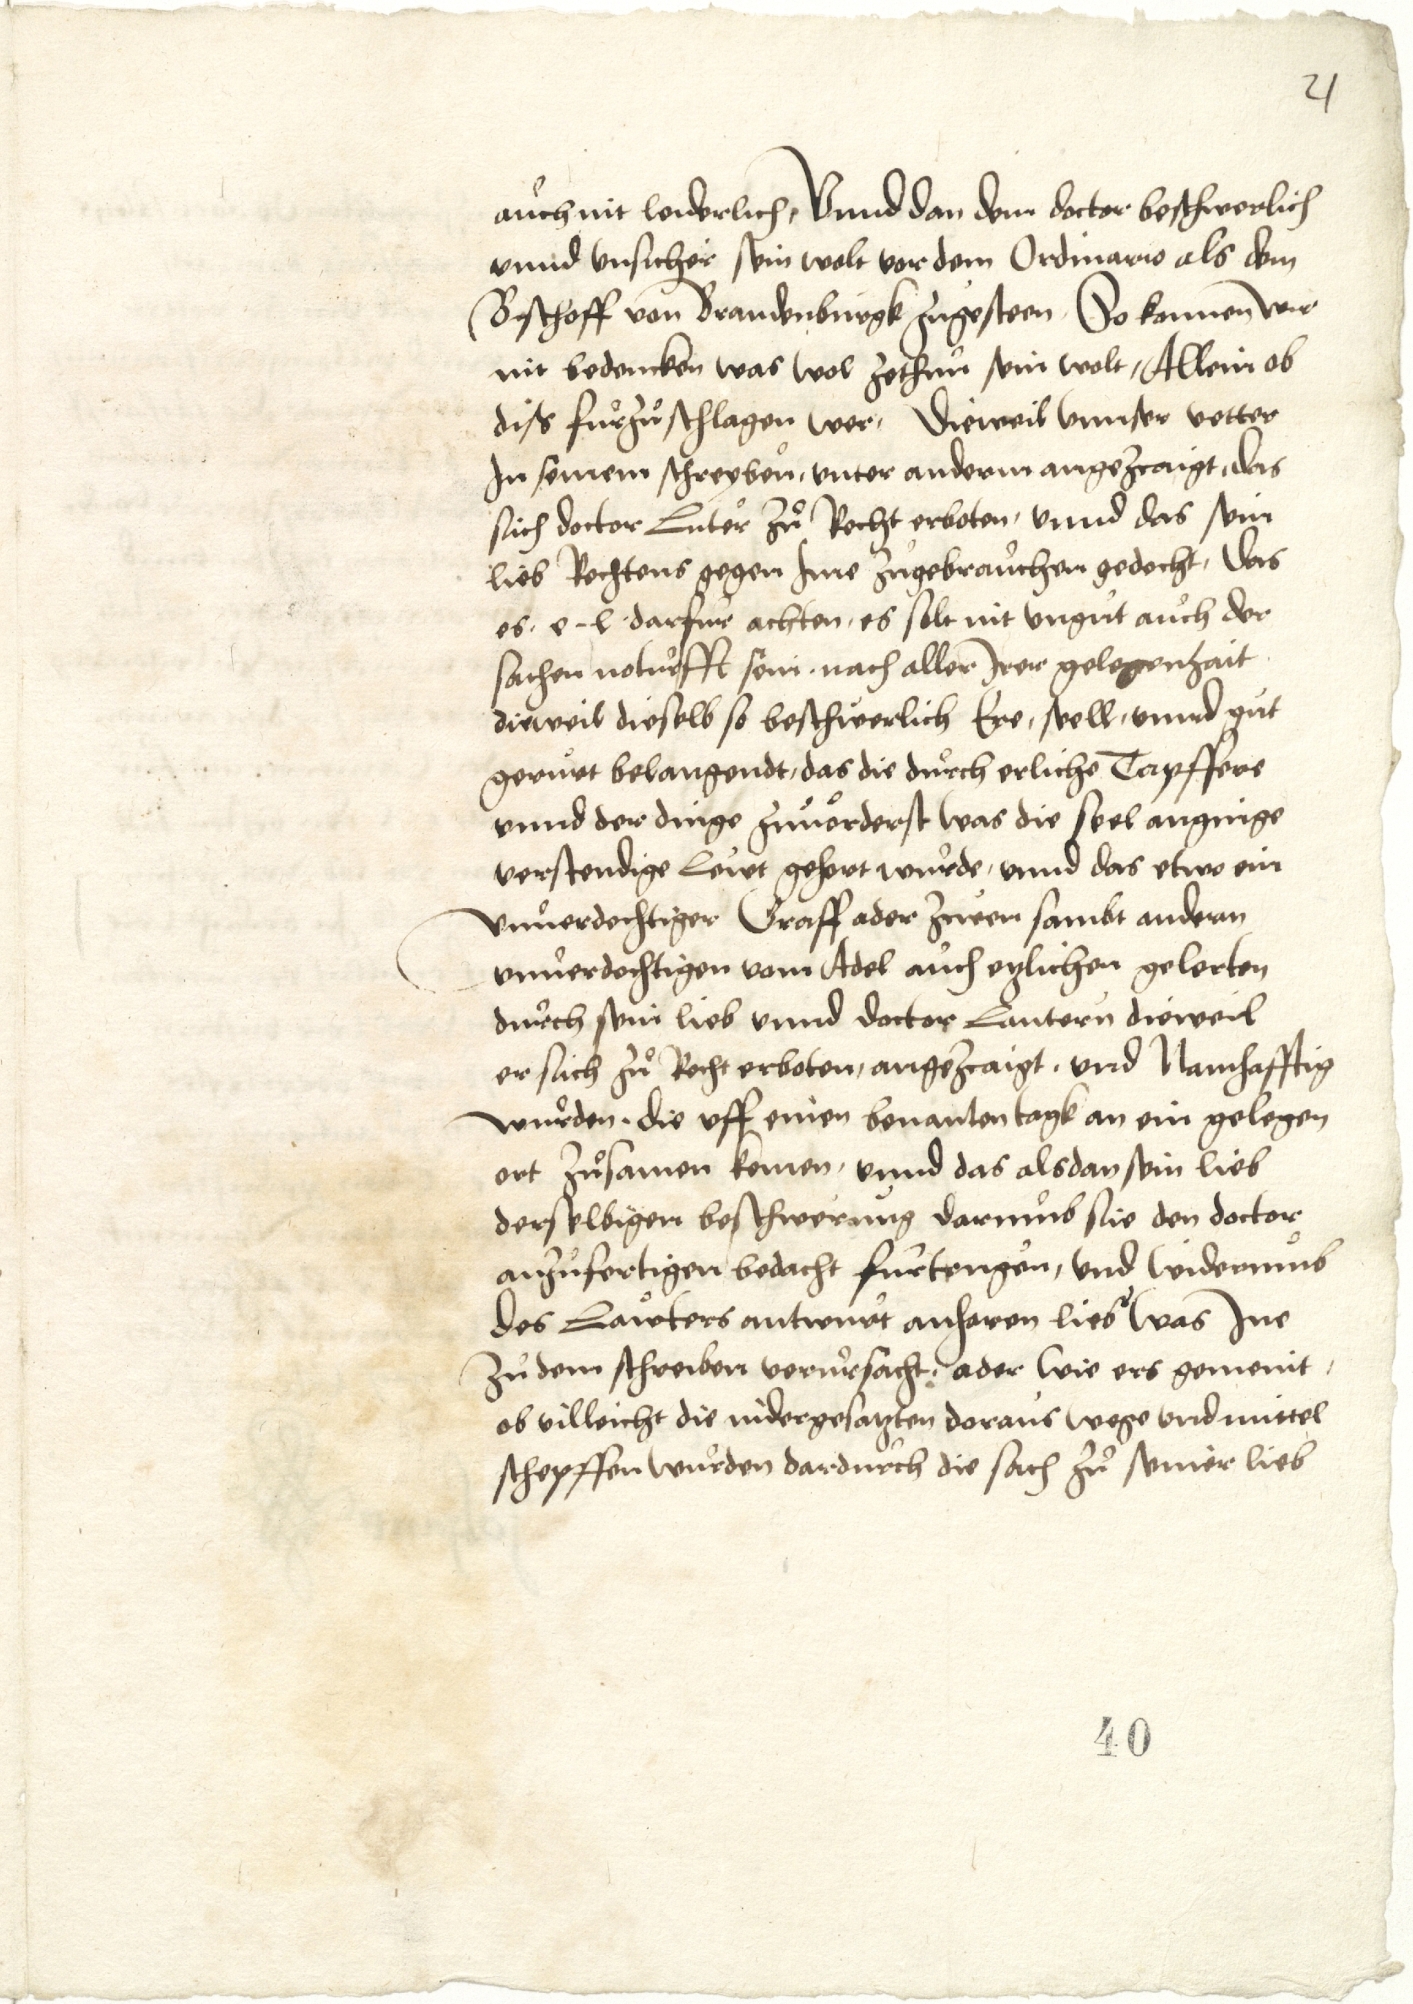 21
auch nit leiderlich, Vnnd dan dem doctor beschwerlich
vnnd vnsicher sein wolt vor dem Ordinario als dem
Bischoff von Brandenburgk zugesteen. So konnen wir
nit bedencken was wol zethun sein wolt, Allein ob
diß furzuschlagen wer, Dieweil vnnser vetter
In seinem schreyben, vnter anderm angezcaigt, das
sich doctor Luter zu Recht erboten, vnnd das sein
lieb Rechtens gegen Ime zugebrauchen gedecht, Das
es. e. l. darfur achten, es solt nit vngut auch der
sachen noturfft sein. nach aller Irer gelegenhait
dieweil dieselb so beschwerlich Ere, seell, vnnd gut
gerurt belangendt, das die durch erliche Tapffere
vnnd der dinge zuuorderst was die seel anginge
verstendige Leut gehort wurde, vnnd das etwo ein
vnuerdechtiger Graff ader zween sambt andern
vnuerdechtigen vom Adel auch etzlichen gelerten
durch sein lieb vnnd doctor Lautern dieweil
er sich zu Recht erboten, angezcaigt. vnd Namhafftig
wurden. die vff einen benanten tagk an ein gelegen
ort zusamen kemen, vnnd das alsdan sein lieb
derselbigen beschwerung darumb sie den doctor
anzufertigen bedacht furtrugen, vnd widerumb
des Lauters antwurt anhoren lies was Ine
zu dem schreiben verursacht, ader wie ers gemeint,
ob villeicht die nidergesatzten doraus wege vnd mittel
schepffen wurden dardurch die sach zu seiner lieb
40